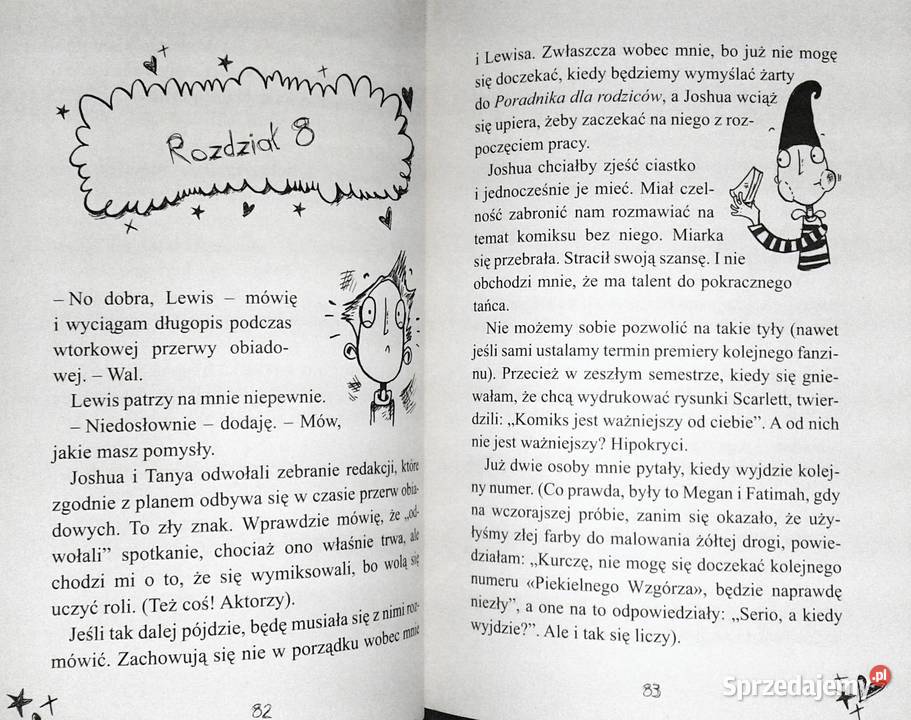 Rozdział 8
– No dobra, Lewis – mówię
i wyciągam długopis podczas
wtorkowej przerwy obiado-
wej. – Wal.
Lewis patrzy na mnie niepewnie.
– Niedosłownie – dodaję. – Mów,
jakie masz pomysły.
Joshua i Tanya odwołali zebranie redakcji, które
zgodnie z planem odbywa się w czasie przerw obia-
dowych. To zły znak. Wprawdzie mówię, że „od-
wołali” spotkanie, chociaż ono właśnie trwa, ale
chodzi mi o to, że się wymiksowali, bo wolą się
uczyć roli. (Też coś! Aktorzy).
Jeśli tak dalej pójdzie, będę musiała się z nimi roz-
mówić. Zachowują się nie w porządku wobec mnie
82
i Lewisa. Zwłaszcza wobec mnie, bo już nie mogę
się doczekać, kiedy będziemy wymyślać żarty
do Poradnika dla rodziców, a Joshua wciąż
się upiera, żeby zaczekać na niego z roz-
poczęciem pracy.
Joshua chciałby zjeść ciastko
i jednocześnie je mieć. Miał czel-
ność zabronić nam rozmawiać na
temat komiksu bez niego. Miarka
się przebrała. Stracił swoją szansę. I nie
obchodzi mnie, że ma talent do pokracznego
tańca.
Nie możemy sobie pozwolić na takie tyły (nawet
jeśli sami ustalamy termin premiery kolejnego fanzi-
nu). Przecież w zeszłym semestrze, kiedy się gnie-
wałam, że chcą wydrukować rysunki Scarlett, twier-
dzili: „Komiks jest ważniejszy od ciebie”. A od nich
nie jest ważniejszy? Hipokryci.
Już dwie osoby mnie pytały, kiedy wyjdzie kolej-
ny numer. (Co prawda, były to Megan i Fatimah, gdy
na wczorajszej próbie, zanim się okazało, że uży-
łyśmy złej farby do malowania żółtej drogi, powie-
działam: „Kurczę, nie mogę się doczekać kolejnego
numeru «Piekielnego Wzgórza», będzie naprawdę
niezły”, a one na to odpowiedziały: „Serio, a kiedy
wyjdzie?”. Ale i tak się liczy).
83
Sprzedajemy.pl